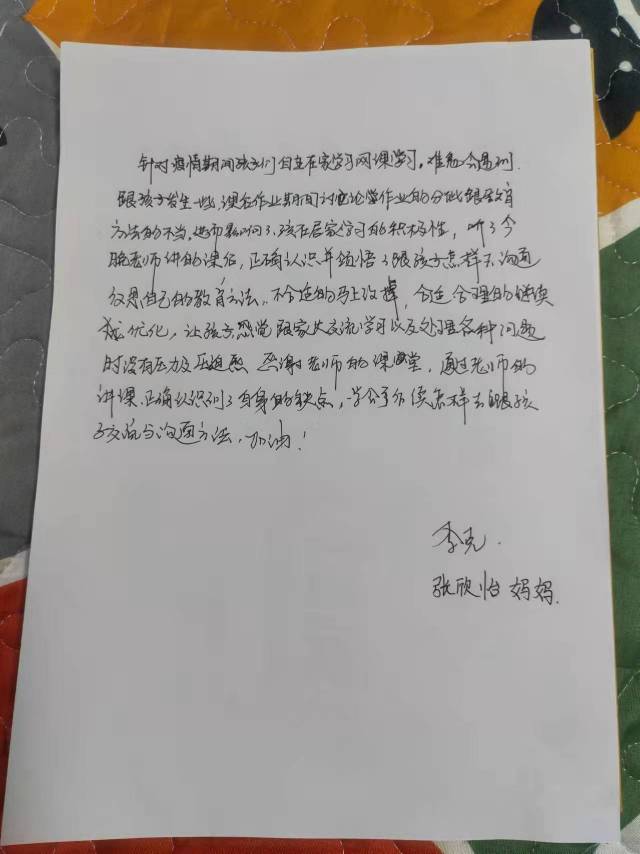 针对疫情期间孩子们自主在家学习网课学习。难免会遇到
跟孩子发生一些课后作业期间讨论作业的分歧跟教育
方法的不当。孩在居家学习的积极性，听了今
晚老师讲的课程，正确认识并领悟了跟孩子怎样去沟通
反思自己的教育方法、不合适的马上改掉，合适合理的继续
优化，让孩子感觉跟家长交流学习以及处理各种问题
时没有压力及压迫感 感谢老师的课堂，通过老师的
讲课.正确认识到了自身的缺点，学会了后续怎样去跟孩
子交流与沟通方法，加油！
李克.
张欣怡妈妈.